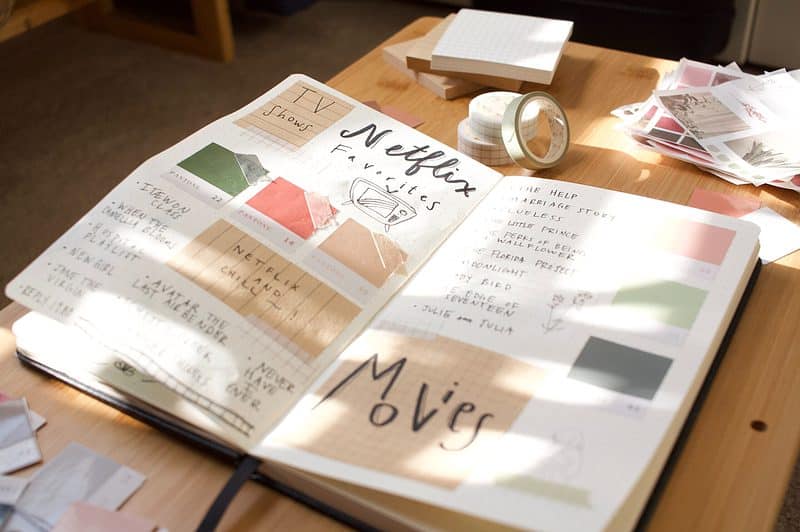 TV
Shows
Netflix
Favorites
PANTONE
22
PANTONE
• ITEWON
CLASS
• WHEN THE
CAMELLIA BLOOMS
• HOSPITAL
PLAYLIST
• NEW GIRL
• JANE THE
VIRGIN
• REPLY 1988
NETFLIX
AND
CHILL!
• AVATAR THE
LAST AIRBENDER
• NEVER
HAVE I
EVER
THE HELP
MARRIAGE STORY
CLUELESS
LITTLE PRINCE
PERKS OF BEING
WALLFLOWER
FLORIDA PROJECT
MOONLIGHT
BIRD
EDGE OF
SEVENTEEN
• JULIE AND JULIA
Movies